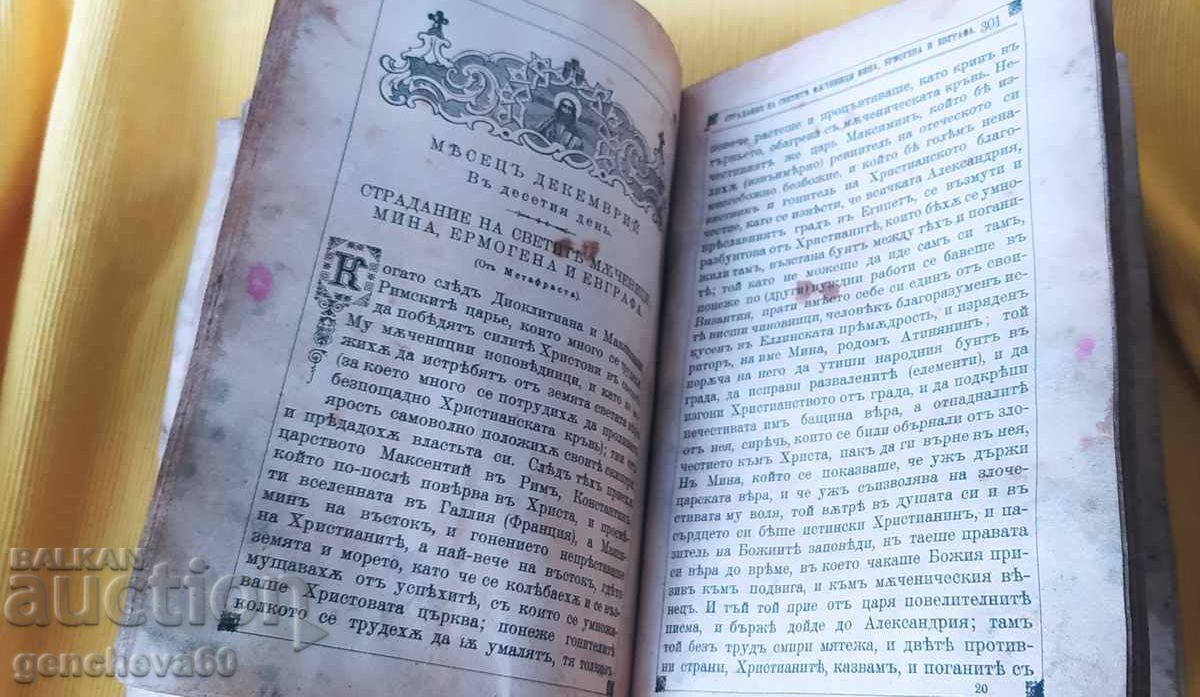 МѢСЕЦЪ ДЕКЕМВРИЙ
Въ десетия день.
СТРАДАНИЕ НА СВЕТИТѢ МѪЧЕНИЦИ
МИНА, ЕРМОГЕНА И ЕВГРАФА.
(Отъ Метафраста).
Когато слѣдъ Диоклитиана и
Римските царье, които много се
да побѣдятъ силитѣ Христови въ
Му мѫченици исповѣдници, и като не
жихѫ да истрѣбятъ отъ земята светата вѣра
(за което много се потрудихѫ да проливатъ
безпощадно Христианската кръвь); тия отъ
ярость самоволно положихѫ своитѣ скиптри,
и прѣдадохѫ властьта си. Слѣдъ тѣхъ приехѫ
царството Максентий въ Римъ, Константинъ,
който по-послѣ повѣрва въ Христа, и просвѣ-
ти вселенната въ Галлия (Франция), а Макси-
минъ на въстокъ, и гонението непрѣставаше
на Христианитѣ, а най-вече на въстокъ, гдѣто
земята и морето, като че се колѣбаехѫ и се въз-
мущавахѫ отъ успѣхитѣ, съ които се умножа-
ваше Христовата църква; понеже гонителитѣ
колкото се трудехѫ да ѭ умалятъ, тя толкозъ
СТРАДАНИЕ НА СВЕТИТѢ МѪЧЕНИЦИ МИНА, ЕРМОГЕНА И ЕВГРАФА. 301
повече растеше и процъвтяваше, като кринъ въ
търньето, обагренъ съ мѫченическата кръвь. Не-
честивиятъ же царь Максиминъ, който бѣ из-
лихѫ (извънмѣрно) ревнитель на отеческото си
многобожно безбожие, и който бѣ големъ нена-
вистникъ и гонитель на Христианското благо-
честие, като се извѣсти, че всичката Александрия,
прѣславниятъ градъ въ Египетъ, се възмути и
разбунтова отъ Христианитѣ, които бѣхѫ се умно-
жили тамъ, въстана бунтъ между тѣхъ и погани-
тѣ; той като не можеше да иде самъ си тамъ,
понеже по (други) нуждни работи се бавеше въ
Византия, прати вмѣсто себе си единъ отъ свои-
тѣ висши чиновници, человѣкъ благоразуменъ ис-
кусенъ въ Еллинската прѣмѫдрость, и изряденъ
риторъ, на име Мина, родомъ Атинянинъ; той
порѫча на него да утиши народния бунтъ въ
града, да исправи разваленитѣ (елементи), и да
изгони Христианството отъ града, и да подкрѣпи
нечестивата имъ бащина вѣра, а отпадналитѣ
отъ нея, сирѣчь, които се били обърнали отъ зло-
честието къмъ Христа, пакъ да ги върне въ нея,
Нъ Мина, който се показваше, че ужъ държи
царската вѣра, и че ужъ съизволява на злоче-
стивата му воля, той вѫтрѣ въ душата си и въ
сърдцето си бѣше истински Христианинъ, и па-
зитель на Божиитѣ заповѣди, нъ таеше правата
си вѣра до врѣме, въ което чакаше Божия при-
зивъ къмъ подвига, и къмъ мѫченическия вѣ-
нецъ. И тъй той прие отъ царя повелителнитѣ
писма, и бърже дойде до Александрия; тамъ
той безъ трудъ смири мятежа, и двѣтѣ против-
ни страни, Христианитѣ, казвамъ, и поганитѣ съ
20
BALKAN
auction
gencheva60